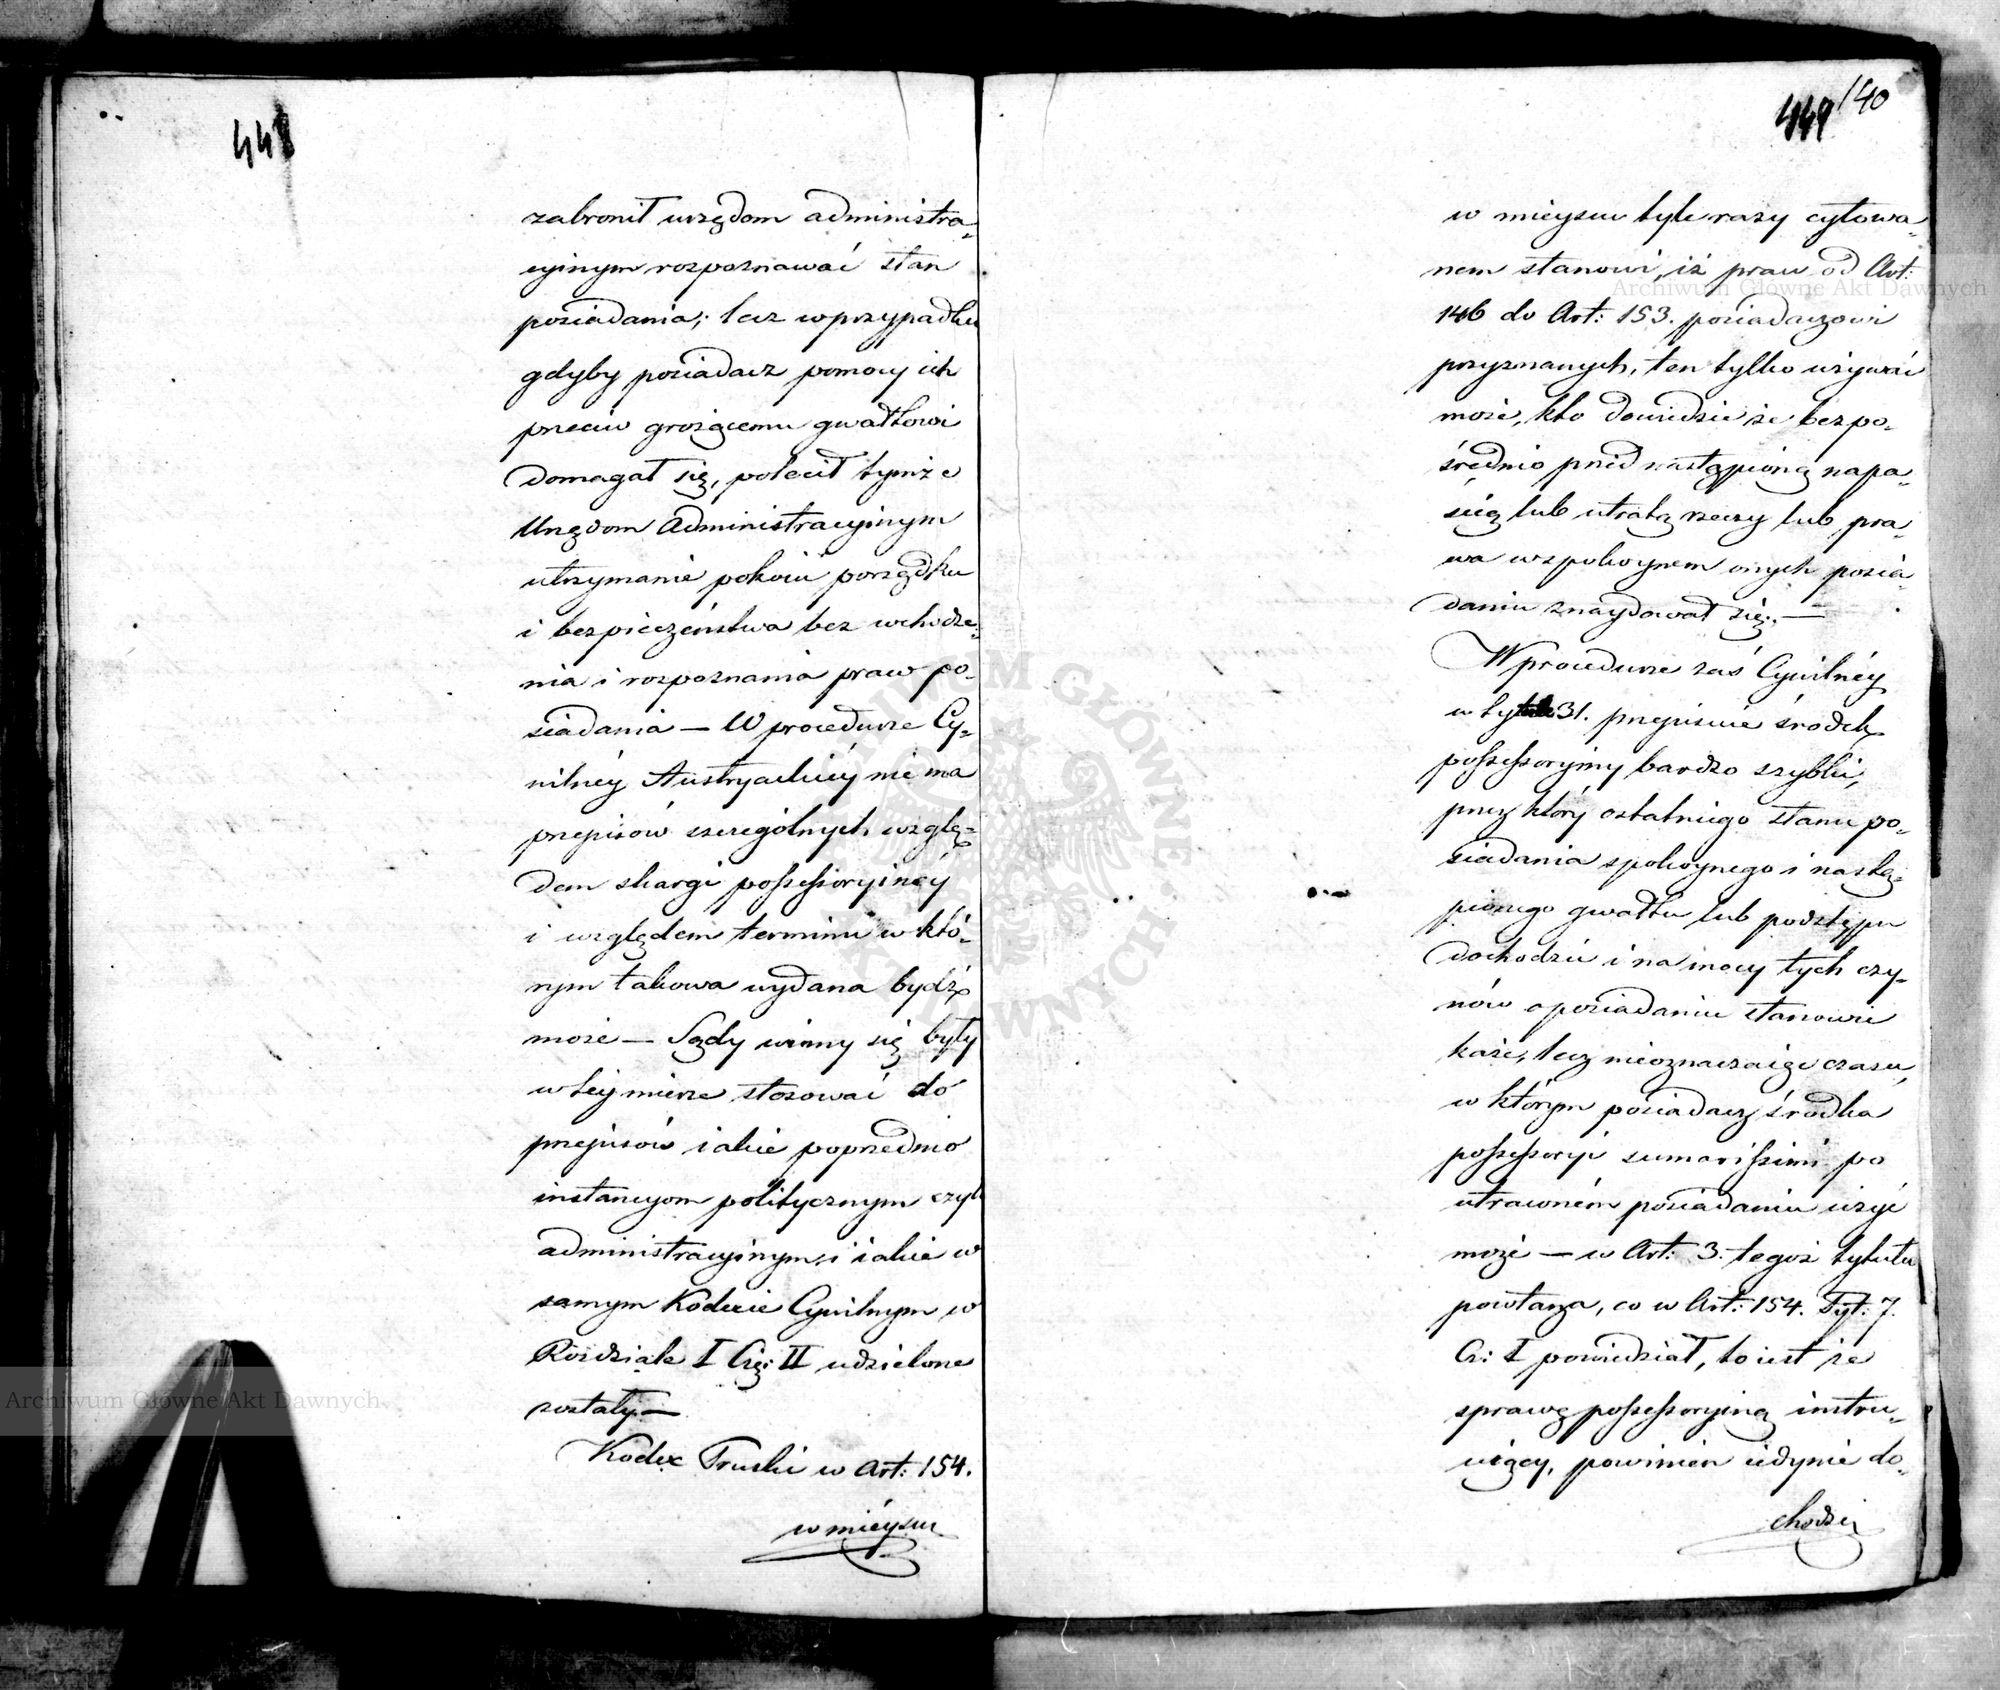 448
zabronił urzędom administra-
cyinym rozpoznawać stan
posiadania; lecz w przypadku
gdyby posiadacz pomocy ich
przeciw grożącemu gwałtowi
domagał się, polecił tymże
Urzędom Administracyinym
utrzymanie pokoiu porządku
i bezpieczeństwa bez wchodze-
nia i rozpoznania praw po-
siadania — W procedurze Cy-
wilnéy Austryackiéy nie ma
przepisów szczególnych wzglę-
dem skargi possessoryinéy
i względem terminu w któ-
rym takowa wydana bydź
może — Sądy winny się były
w tey mierze stosować do
przepisów iakie poprzednio
instancyom politycznym czyli
administracyinym, i iakie w
samym Kodexie Cywilnym w
Rozdziale I Czę: II udzielone
zostały —
Kodex Pruski w Art: 154.
w miéyscu
449 140
w mieyscu tyle razy cytowa-
nem stanowi, iż praw od Art:
146 do Art: 153. posiadaczowi
przyznanych, ten tylko używać
może, kto dowiedzie że bezpo-
średnio przed nastąpioną napa-
ścią lub utratą rzeczy lub pra-
wa w spokoynem onych posia-
daniu znaydował się. —
W procedurze zaś Cywilnéy
w tytule 31. przepisuie środek
possessoryiny bardzo szybki,
przez który ostatniego stanu po-
siadania spokoynego i nastą-
pionego gwałtu lub podstępu
dochodzić i na mocy tych czy-
nów o posiadaniu stanowić
każe, lecz nieoznaczaiąc czasu,
w którym posiadacz środka
possessoryi sumarissimi po
utraconém posiadaniu użyć
może — w Art: 3. tegoż tytułu
powtarza, co w Art: 154. Tyt: 7.
Cz: I powiedział, to iest że
sprawę possessoryiną instru-
uiący, powinien iedynie do-
chodzić
Archiwum Główne Akt Dawnych
Archiwum Główne Akt Dawnych